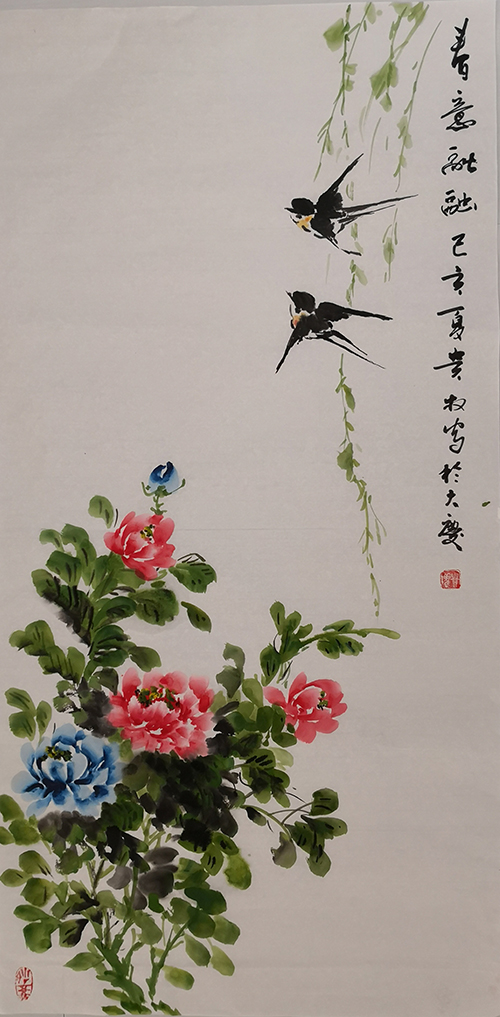 春意融融己亥夏贵权写於大庆